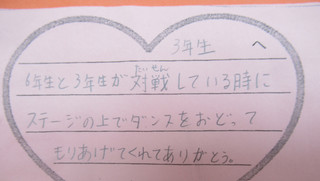 3年生 へ
6年生と3年生が対戦している時に
たいせん
ステージの上でダンスをおどって
もりあげてくれてありがとう。